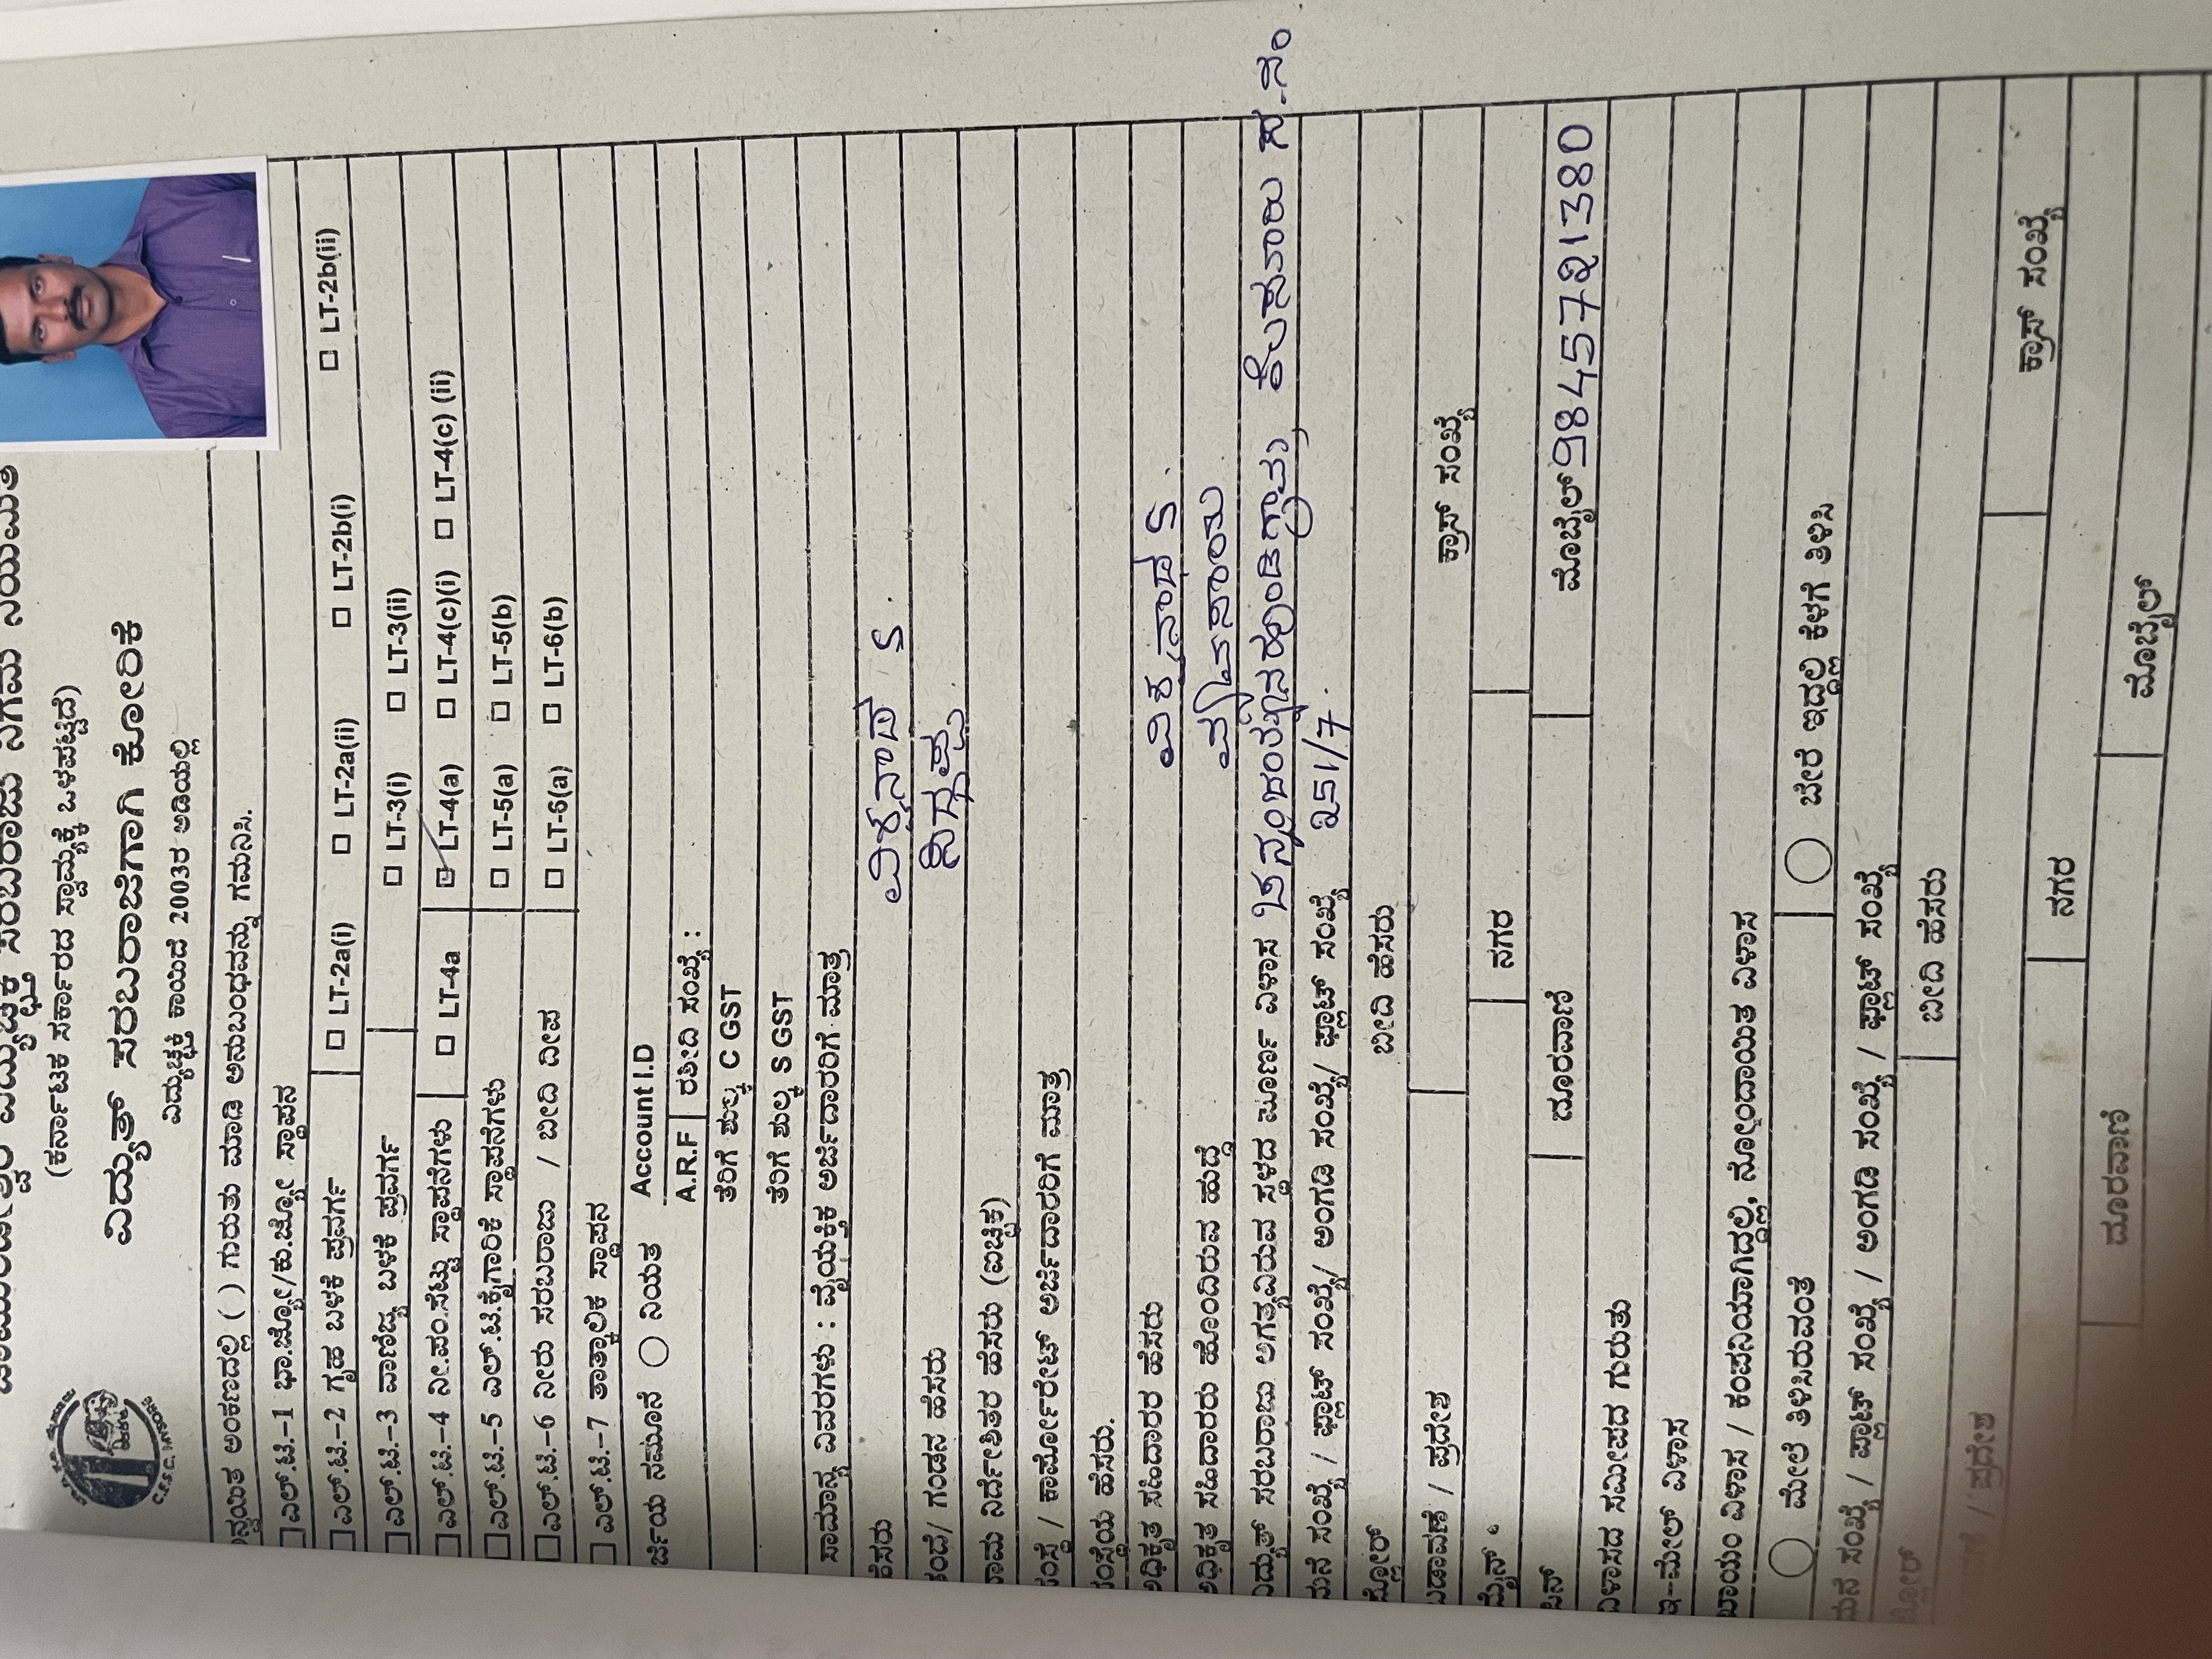 ಚಾಮುಂಡೇಶ್ವರಿ ವಿದ್ಯುಚ್ಛಕ್ತಿ ಸರಬರಾಜು ನಿಗಮ ನಿಯಮಿತ
(ಕರ್ನಾಟಕ ಸರ್ಕಾರದ ಸ್ವಾಮ್ಯಕ್ಕೆ ಒಳಪಟ್ಟಿದೆ)
ವಿದ್ಯುತ್ ಸರಬರಾಜಿಗಾಗಿ ಕೋರಿಕೆ
ವಿದ್ಯುಚ್ಛಕ್ತಿ ಕಾಯಿದೆ 2003ರ ಅಡಿಯಲ್ಲಿ
ಅನ್ವಯಿತ ಅಂಕಣದಲ್ಲಿ ( ) ಗುರುತು ಮಾಡಿ ಅನುಬಂಧವನ್ನು ಗಮನಿಸಿ.
ಎಲ್.ಟಿ.-1 ಭಾ.ಜ್ಯೋ/ಕು.ಜ್ಯೋ ಸ್ಥಾಪನ
ಎಲ್.ಟಿ.-2 ಗೃಹ ಬಳಕೆ ಪ್ರವರ್ಗ LT-2a(i) LT-2a(ii) LT-2b(i) LT-2b(ii)
ಎಲ್.ಟಿ.-3 ವಾಣಿಜ್ಯ ಬಳಕೆ ಪ್ರವರ್ಗ LT-3(i) LT-3(ii)
ಎಲ್.ಟಿ.-4 ನೀ.ಪಂ.ಸೆಟ್ಟು ಸ್ಥಾಪನೆಗಳು LT-4a LT-4(a) LT-4(c)(i) LT-4(c) (ii)
ಎಲ್.ಟಿ.-5 ಎಲ್.ಟಿ.ಕೈಗಾರಿಕೆ ಸ್ಥಾಪನೆಗಳು LT-5(a) LT-5(b)
ಎಲ್.ಟಿ.-6 ನೀರು ಸರಬರಾಜು / ಬೀದಿ ದೀಪ LT-6(a) LT-6(b)
ಎಲ್.ಟಿ.-7 ತಾತ್ಕಾಲಿಕ ಸ್ಥಾಪನ
ರ್ಜಿಯ ನಮೂನೆ ನಿಯತ Account I.D
A.R.F ರಶೀದಿ ಸಂಖ್ಯೆ :
ತೆರಿಗೆ ಶುಲ್ಕ C GST
ತೆರಿಗೆ ಶುಲ್ಕ S GST
ಸಾಮಾನ್ಯ ವಿವರಗಳು : ವೈಯಕ್ತಿಕ ಅರ್ಜಿದಾರರಿಗೆ ಮಾತ್ರ
ಹೆಸರು ವಿಶ್ವನಾಥ S.
ತಂದೆ/ ಗಂಡನ ಹೆಸರು
ನಾಮ ನಿರ್ದೇಶಿತರ ಹೆಸರು (ಐಚ್ಛಿಕ)
ಸಂಸ್ಥೆ / ಕಾರ್ಪೋರೇಟ್ ಅರ್ಜಿದಾರರಿಗೆ ಮಾತ್ರ
ಸಂಸ್ಥೆಯ ಹೆಸರು.
ಅಧಿಕೃತ ಸಹಿದಾರರ ಹೆಸರು ವಿಶ್ವನಾಥ S.
ಅಧಿಕೃತ ಸಹಿದಾರರು ಹೊಂದಿರುವ ಹುದ್ದೆ
ವಿದ್ಯುತ್ ಸರಬರಾಜು ಅಗತ್ಯವಿರುವ ಸ್ಥಳದ ಪೂರ್ಣ ವಿಳಾಸ
ಮನೆ ಸಂಖ್ಯೆ / ಫ್ಲಾಟ್ ಸಂಖ್ಯೆ/ ಅಂಗಡಿ ಸಂಖ್ಯೆ/ ಫ್ಲಾಟ್ ಸಂಖ್ಯೆ 251/7.
ಫ್ಲೋರ್ ಬೀದಿ ಹೆಸರು
ಬಡಾವಣೆ / ಪ್ರದೇಶ ಕ್ರಾಸ್ ಸಂಖ್ಯೆ
ಮೈನ್ ನಗರ
ಪಿನ್ ದೂರವಾಣಿ ಮೊಬೈಲ್ 9845721380
ವಿಳಾಸದ ಸಮೀಪದ ಗುರುತು
ಇ-ಮೇಲ್ ವಿಳಾಸ
ಖಾಯಂ ವಿಳಾಸ / ಕಂಪನಿಯಾಗಿದ್ದಲ್ಲಿ, ನೋಂದಾಯಿತ ವಿಳಾಸ
ಮೇಲೆ ತಿಳಿಸಿರುವಂತೆ ಬೇರೆ ಇದ್ದಲ್ಲಿ ಕೆಳಗೆ ತಿಳಿಸಿ
ಮನೆ ಸಂಖ್ಯೆ / ಪ್ಲಾಟ್ ಸಂಖ್ಯೆ / ಅಂಗಡಿ ಸಂಖ್ಯೆ / ಫ್ಲಾಟ್ ಸಂಖ್ಯೆ
ಫ್ಲೋರ್ ಬೀದಿ ಹೆಸರು
/ ಪ್ರದೇಶ ಕ್ರಾಸ್ ಸಂಖ್ಯೆ
ನಗರ
ದೂರವಾಣಿ ಮೊಬೈಲ್